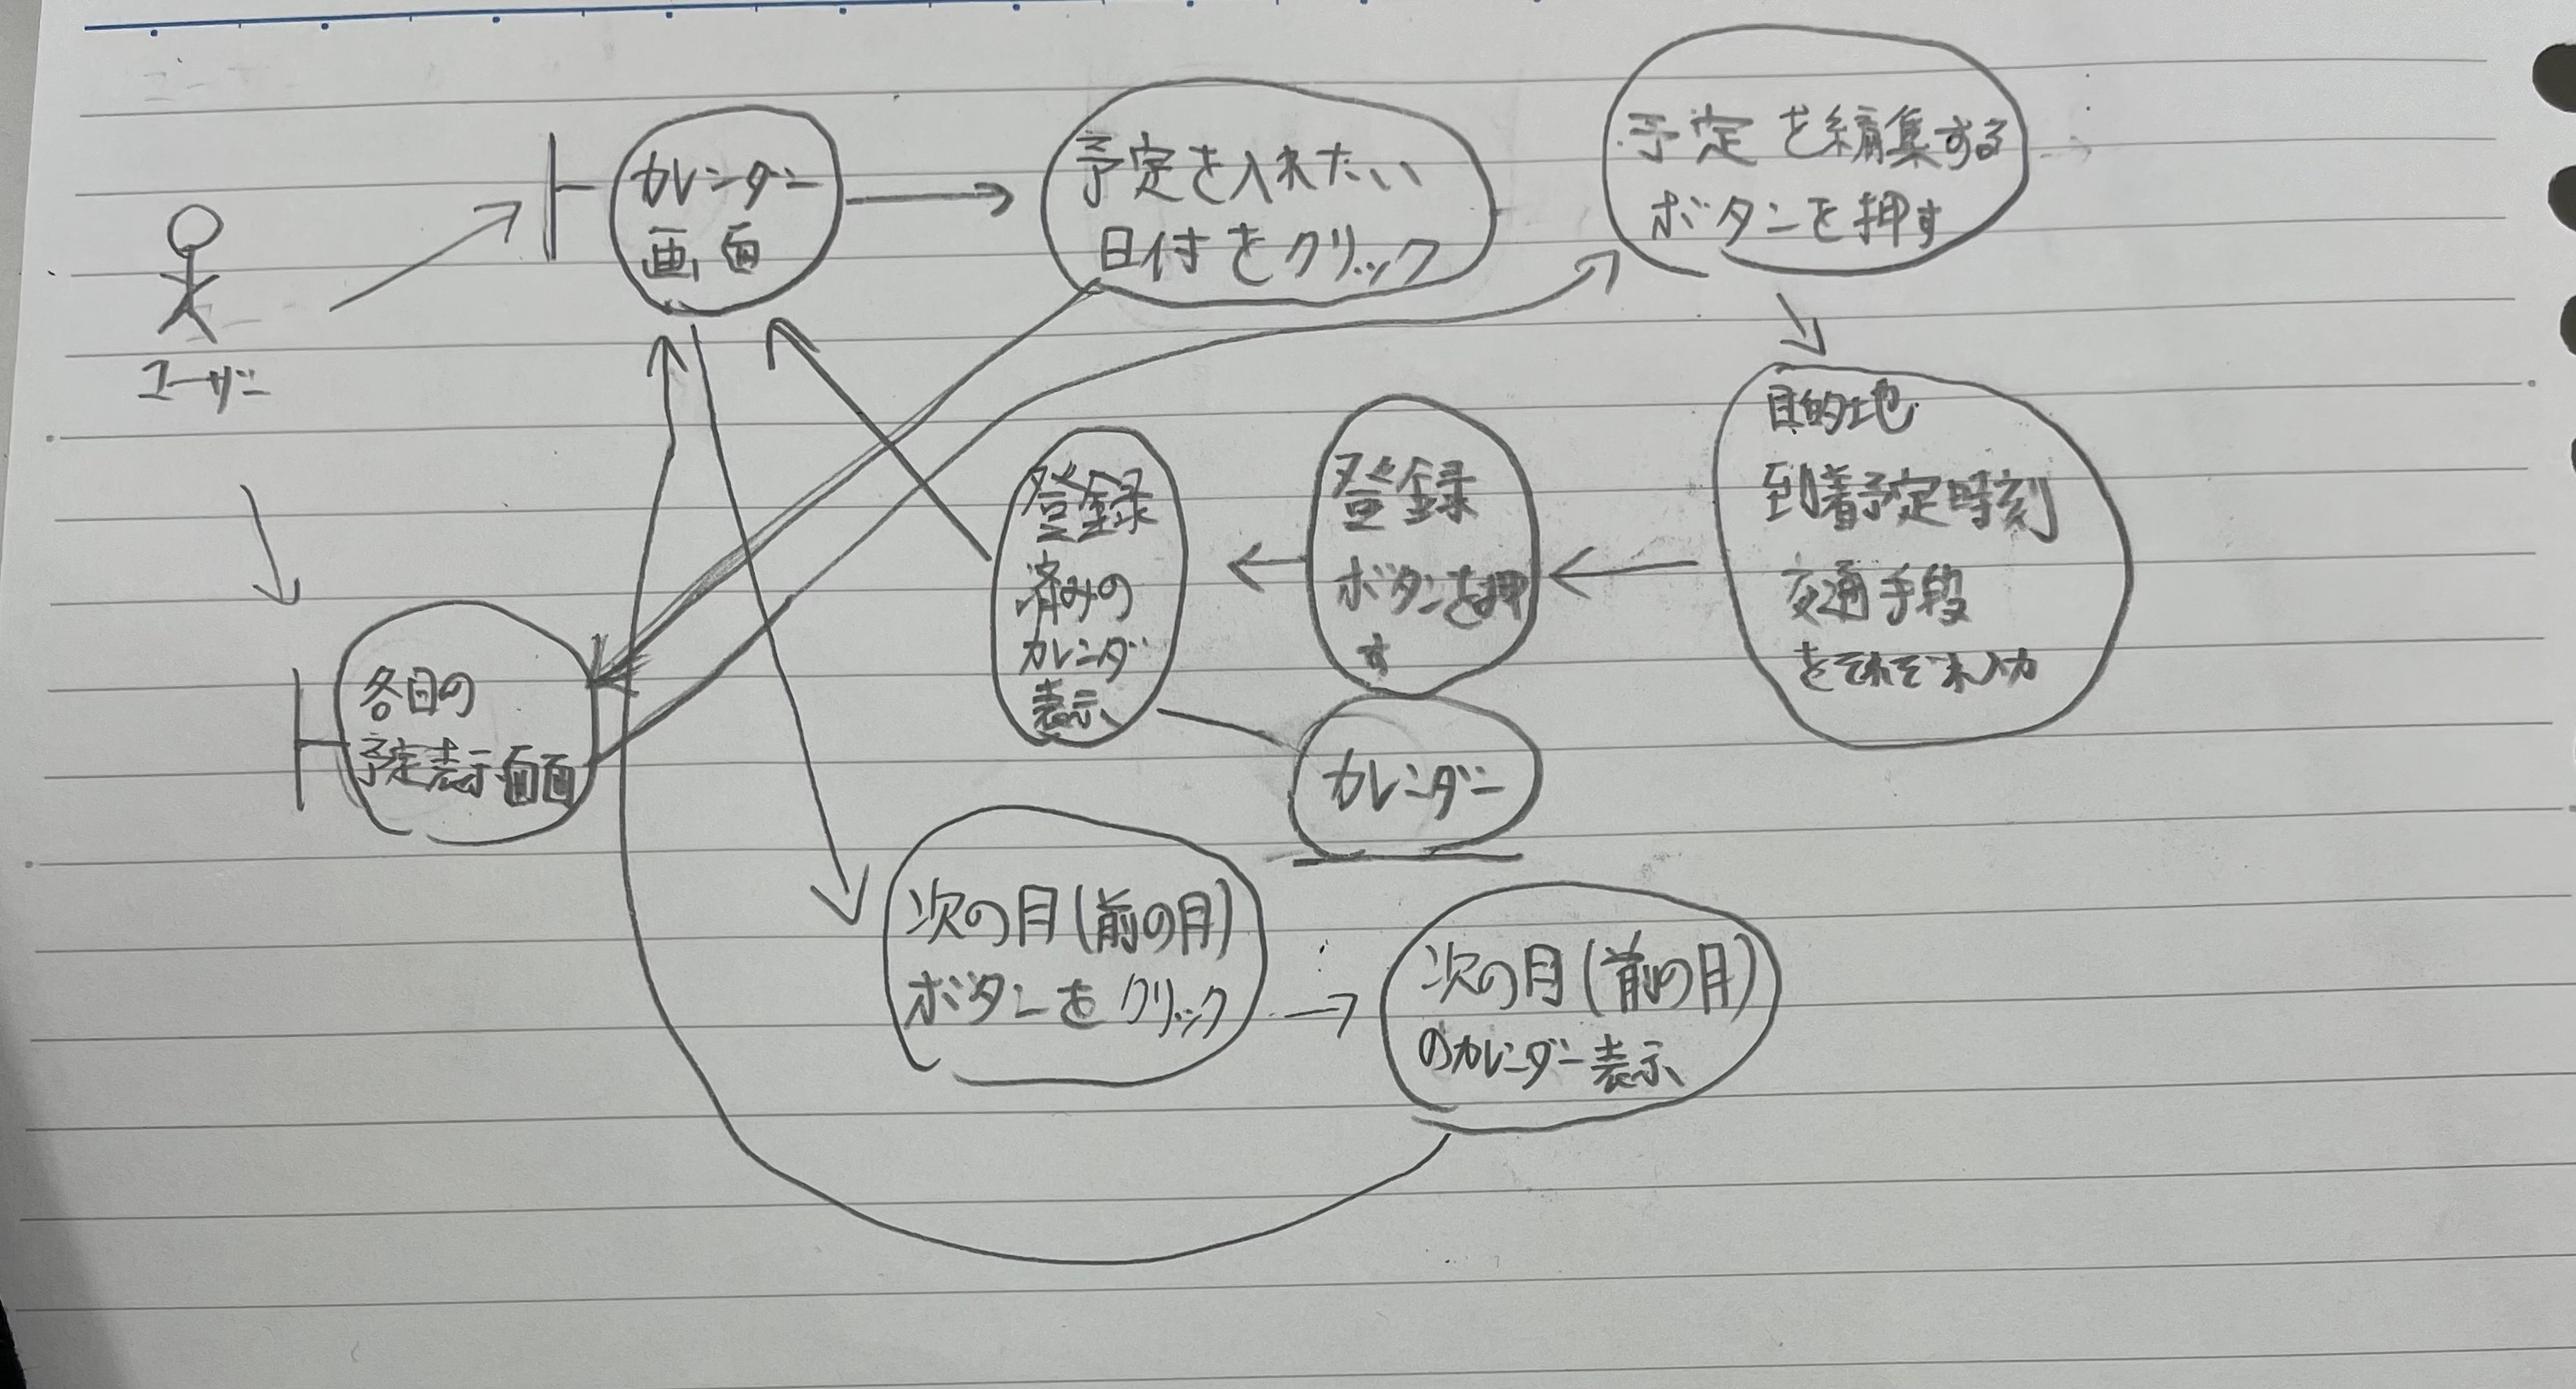 カレンダー
画面
予定を入れたい
日付をクリック
予定を編集する
ボタンを押す
ユーザー
目的地
到着予定時刻
交通手段
をそれぞれ入力
登録
ボタンを押
す
登録
済みの
カレンダー
表示
カレンダー
各日の
予定表示画面
次の月(前の月)
ボタンをクリック
次の月(前の月)
のカレンダー表示